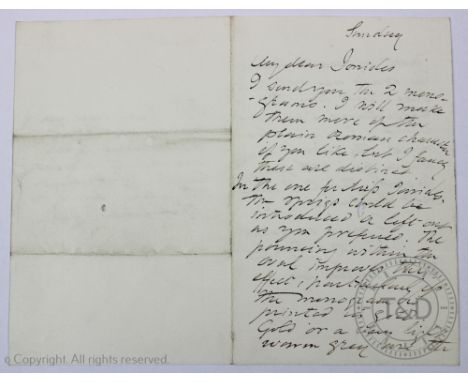 Sunday
My dear Ionides
I send you the 2 mono-
-grams. I will make
them more of the
plain roman character
if you like, but I fancy
these are distinct.
In the one for Miss Ionides
the sprigs could be
introduced or left out
as you preferred. The
within an
oval improves the
effect, particularly if
the monogram is
printed in
Gold or a
warm grey
© Copyright. All rights reserved.
T&D